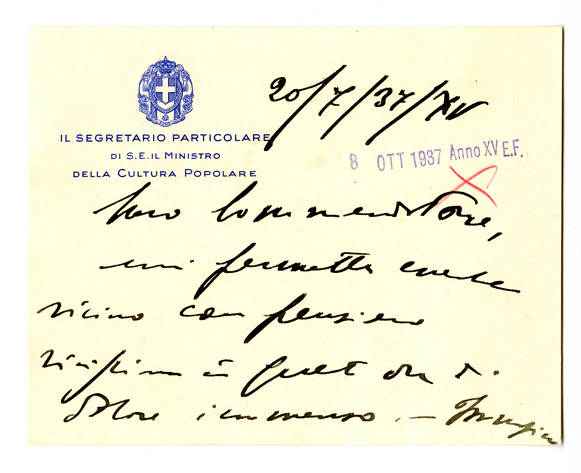 20/7/37/XV
IL SEGRETARIO PARTICOLARE
DI S.E. IL MINISTRO
DELLA CULTURA POPOLARE
8 OTT 1937 Anno XV E.F.
Commendatore,
mi permetta essere
vicino con pensiero
vivissimo in quest'ora di
dolore immenso. —